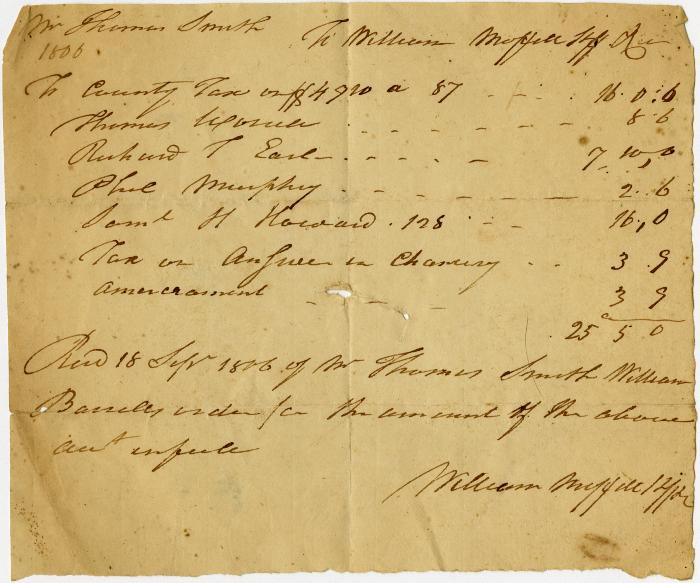 Mr Thomas Smith
1806
To William Moffett Shff Dr
To County Tax on $4910 a 87 16.0.6
Thomas 8.6
Richard T Earle 7.10.0
Phil Murphy 2.6
Saml H Howard. 128 16.0
Tax on Answer in Chancery 3.9
amerciament 3 9
25 5 0
Recd 18 Sepr 1806 of Mr Thomas Smith William
order for the amount of the above
act in full
William Moffett